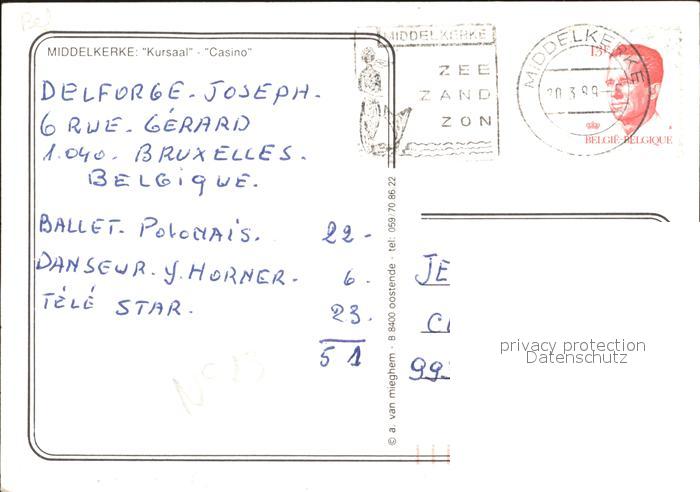 Bel
MIDDELKERKE: "Kursaal" - "Casino"
DELFORGE. JOSEPH.
6 RUE. GÉRARD
1.040. BRUXELLES.
BELGIQUE.
BALLET. POLONAIS. 22-
DANSEUR. Y. HORNER. 6.
TÉLÉ STAR. 23.
51
© a. van mieghem - B 8400 oostende - tel: 059/70 86 22
MIDDELKERKE
ZEE
ZAND
ZON
MIDDELKERKE
13F
BELGIË-BELGIQUE
JE
privacy protection
Datenschutz